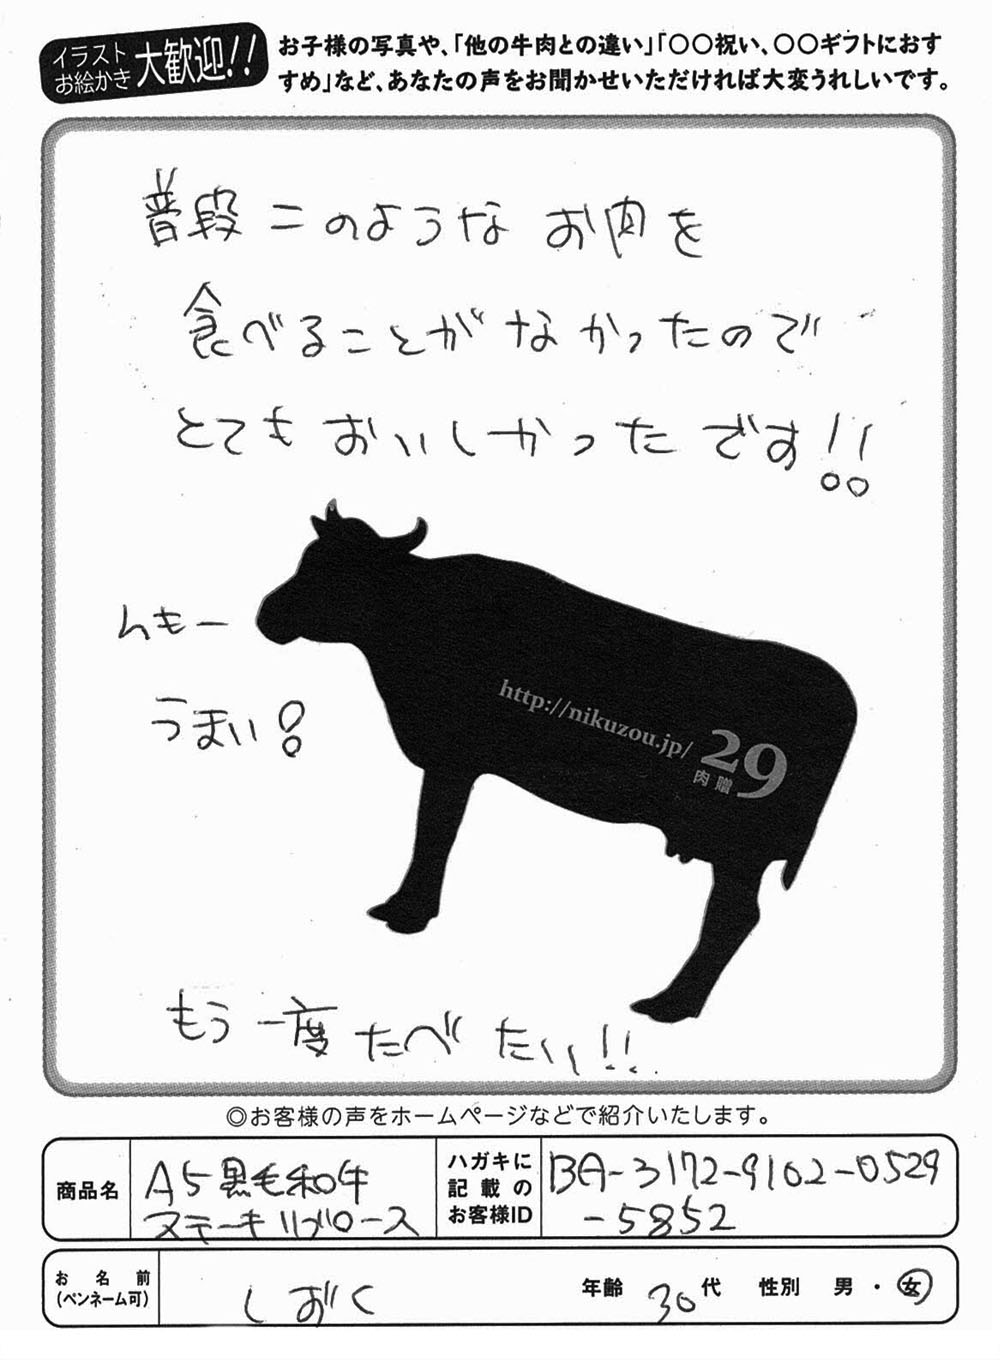 イラスト
お絵かき
大歓迎!!
お子様の写真や、「他の牛肉との違い」「〇〇祝い、〇〇ギフトにおす
すめ」など、あなたの声をお聞かせいただければ大変うれしいです。
普段このようなお肉を
食べることがなかったので
とてもおいしかったです!!
んもー
うまい!
http://nikuzou.jp/
29
肉贈
もう一度たべたい!!
◎お客様の声をホームページなどで紹介いたします。
商品名
A5黒毛和牛
ステーキリブロース
ハガキに
記載の
お客様ID
BA-3172-9102-0529
-5852
お名前
(ペンネーム可)
しおく
年齢 30代 性別 男・女